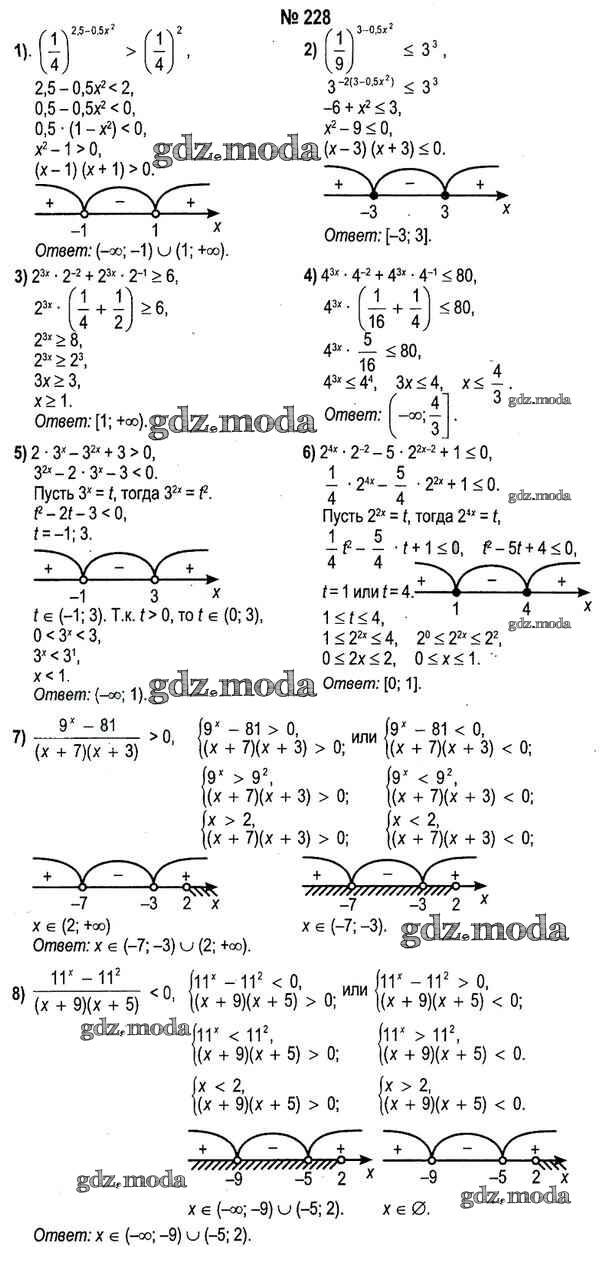 № 228
1). (1/4)^(2,5–0,5x²) > (1/4)²,
2,5 – 0,5x² < 2,
0,5 – 0,5x² < 0,
0,5 · (1 – x²) < 0,
x² – 1 > 0,
(x – 1) (x + 1) > 0.
+ – +
–1 1 x
Ответ: (–∞; –1) ∪ (1; +∞).
2) (1/9)^(3–0,5x²) ≤ 3³,
3^(–2(3–0,5x²)) ≤ 3³
–6 + x² ≤ 3,
x² – 9 ≤ 0,
(x – 3) (x + 3) ≤ 0.
+ – +
–3 3 x
Ответ: [–3; 3].
gdz.moda
3) 2³ˣ · 2⁻² + 2³ˣ · 2⁻¹ ≥ 6,
2³ˣ · (1/4 + 1/2) ≥ 6,
2³ˣ ≥ 8,
2³ˣ ≥ 2³,
3x ≥ 3,
x ≥ 1.
Ответ: [1; +∞).
gdz.moda
4) 4³ˣ · 4⁻² + 4³ˣ · 4⁻¹ ≤ 80,
4³ˣ · (1/16 + 1/4) ≤ 80,
4³ˣ · 5/16 ≤ 80,
4³ˣ ≤ 4⁴, 3x ≤ 4, x ≤ 4/3.
Ответ: (–∞; 4/3].
gdz.moda
5) 2 · 3ˣ – 3²ˣ + 3 > 0,
3²ˣ – 2 · 3ˣ – 3 < 0.
Пусть 3ˣ = t, тогда 3²ˣ = t².
t² – 2t – 3 < 0,
t = –1; 3.
+ – +
–1 3 x
t ∈ (–1; 3). Т.к. t > 0, то t ∈ (0; 3),
0 < 3ˣ < 3,
3ˣ < 3¹,
x < 1.
Ответ: (–∞; 1).
gdz.moda
6) 2⁴ˣ · 2⁻² – 5 · 2²ˣ⁻² + 1 ≤ 0,
1/4 · 2⁴ˣ – 5/4 · 2²ˣ + 1 ≤ 0.
gdz.moda
Пусть 2²ˣ = t, тогда 2⁴ˣ = t,
1/4 t² – 5/4 · t + 1 ≤ 0, t² – 5t + 4 ≤ 0,
t = 1 или t = 4.
+ – +
1 4 x
1 ≤ t ≤ 4,
gdz.moda
1 ≤ 2²ˣ ≤ 4, 2⁰ ≤ 2²ˣ ≤ 2²,
0 ≤ 2x ≤ 2, 0 ≤ x ≤ 1.
Ответ: [0; 1].
7) (9ˣ – 81)/((x + 7)(x + 3)) > 0, {9ˣ – 81 > 0, (x + 7)(x + 3) > 0; или {9ˣ – 81 < 0, (x + 7)(x + 3) < 0;
{9ˣ > 9², (x + 7)(x + 3) > 0; {9ˣ < 9², (x + 7)(x + 3) < 0;
{x > 2, (x + 7)(x + 3) > 0; {x < 2, (x + 7)(x + 3) < 0;
+ – + + – +
–7 –3 2 x –7 –3 2 x
x ∈ (2; +∞) x ∈ (–7; –3).
gdz.moda
Ответ: x ∈ (–7; –3) ∪ (2; +∞).
8) (11ˣ – 11²)/((x + 9)(x + 5)) < 0, {11ˣ – 11² < 0, (x + 9)(x + 5) > 0; или {11ˣ – 11² > 0, (x + 9)(x + 5) < 0;
gdz.moda
{11ˣ < 11², (x + 9)(x + 5) > 0; {11ˣ > 11², (x + 9)(x + 5) < 0.
{x < 2, (x + 9)(x + 5) > 0; {x > 2, (x + 9)(x + 5) < 0.
+ – + + – +
–9 –5 2 x –9 –5 2 x
gdz.moda
gdz.moda
x ∈ (–∞; –9) ∪ (–5; 2). x ∈ ∅.
Ответ: x ∈ (–∞; –9) ∪ (–5; 2).